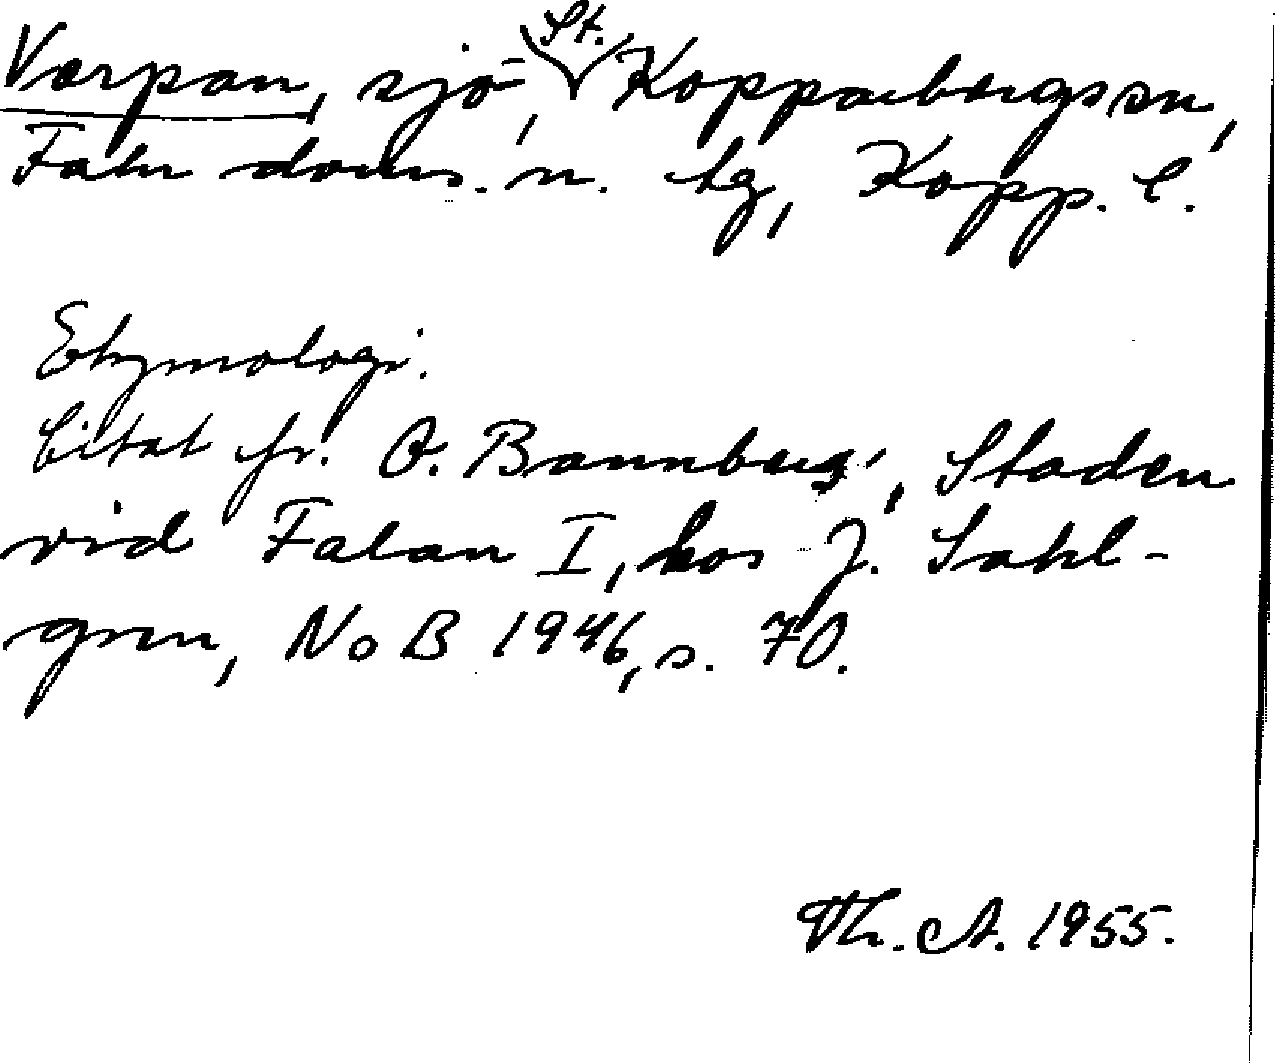 Varpan, sjö, St. Kopparbergs sn,
Falu doms. n. tg, Kopp. l.
Etymologi.
Citat fr. O. Bannbers, Staden
vid Falan I, hos J. Sahl-
gren, NoB 1946, s. 70.
Th. A. 1955.